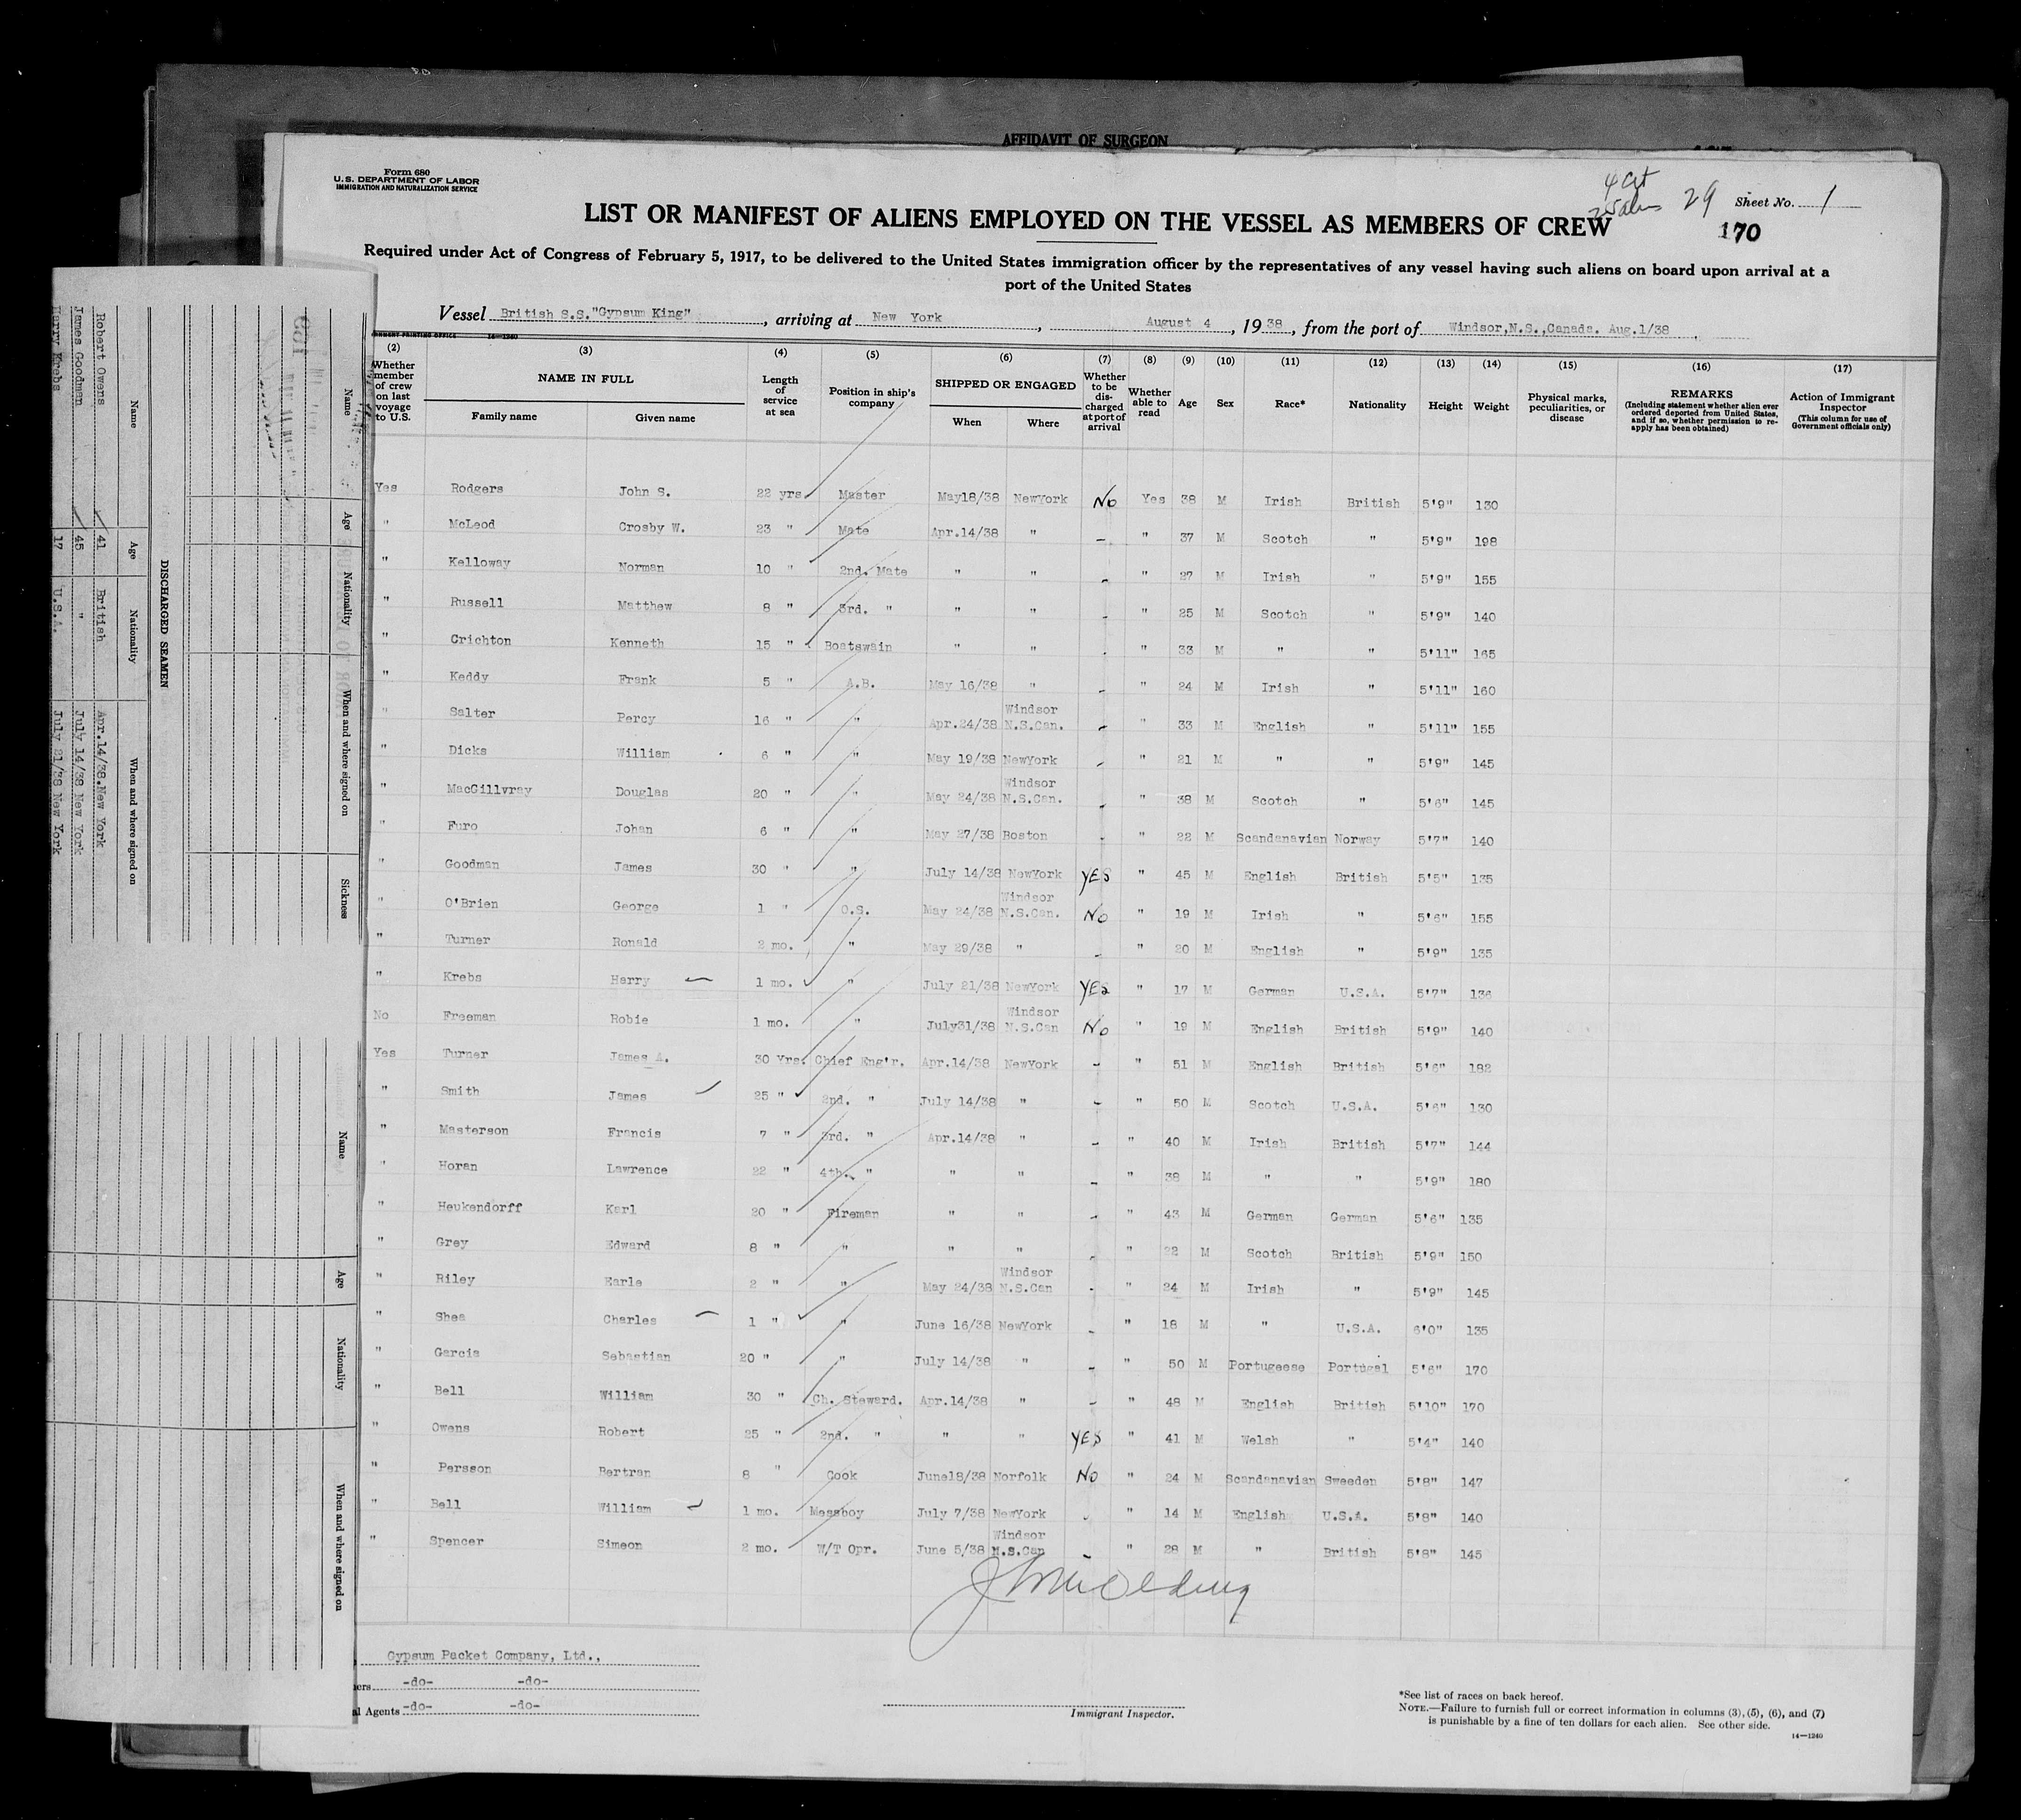 AFFIDAVIT OF SURGEON
Form 680
U. S. DEPARTMENT OF LABOR
IMMIGRATION AND NATURALIZATION SERVICE
29 Sheet No. 1
170
LIST OR MANIFEST OF ALIENS EMPLOYED ON THE VESSEL AS MEMBERS OF CREW
Required under Act of Congress of February 5, 1917, to be delivered to the United States immigration officer by the representatives of any vessel having such aliens on board upon arrival at a
port of the United States
Vessel British S.S."Gypsum King", arriving at New York, August 4, 1938, from the port of Windsor,N.S.,Canada. Aug.1/38
(2) (3) (4) (5) (6) (7) (8) (9) (10) (11) (12) (13) (14) (15) (16) (17)
Whether member of crew on last voyage to U.S. NAME IN FULL Family name Given name Length of service at sea Position in ship's company SHIPPED OR ENGAGED When Where Whether to be discharged at port of arrival Whether able to read Age Sex Race* Nationality Height Weight Physical marks, peculiarities, or disease REMARKS (Including statement whether alien ever ordered deported from United States, and if so, whether permission to re-apply has been obtained) Action of Immigrant Inspector (This column for use of Government officials only)
Yes Rodgers John S. 22 yrs. Master May18/38 NewYork No Yes 38 M Irish British 5'9" 130
" McLeod Crosby W. 23 " Mate Apr.14/38 " - " 37 M Scotch " 5'9" 198
" Kelloway Norman 10 " 2nd. Mate " " - " 27 M Irish " 5'9" 155
" Russell Matthew 8 " 3rd. " " " - " 25 M Scotch " 5'9" 140
" Crichton Kenneth 15 " Boatswain " " - " 33 M " " 5'11" 165
" Keddy Frank 5 " A.B. May 16/38 " - " 24 M Irish " 5'11" 160
" Salter Percy 16 " " Apr.24/38 Windsor N.S.Can. - " 33 M English " 5'11" 155
" Dicks William 6 " " May 19/38 NewYork - " 21 M " " 5'9" 145
" MacGillvray Douglas 20 " " May 24/38 Windsor N.S.Can. - " 38 M Scotch " 5'6" 145
" Furo Johan 6 " " May 27/38 Boston - " 22 M Scandanavian Norway 5'7" 140
" Goodman James 30 " " July 14/38 NewYork YES " 45 M English British 5'5" 135
" O'Brien George 1 " O.S. May 24/38 Windsor N.S.Can. No " 19 M Irish " 5'6" 155
" Turner Ronald 2 mo. " May 29/38 " - " 20 M English " 5'9" 135
" Krebs Harry 1 mo. " July 21/38 NewYork YES " 17 M German U.S.A. 5'7" 136
No Freeman Robie 1 mo. " July31/38 Windsor N.S.Can No " 19 M English British 5'9" 140
Yes Turner James A. 30 Yrs. Chief Eng'r. Apr.14/38 NewYork - " 51 M English British 5'6" 182
" Smith James 25 " 2nd. " July 14/38 " - " 50 M Scotch U.S.A. 5'6" 130
" Masterson Francis 7 " 3rd. " Apr.14/38 " - " 40 M Irish British 5'7" 144
" Horan Lawrence 22 " 4th. " " " - " 38 M " " 5'9" 180
" Heukendorff Karl 20 " Fireman " " - " 43 M German German 5'6" 135
" Grey Edward 8 " " " " - " 22 M Scotch British 5'9" 150
" Riley Earle 2 " " May 24/38 Windsor N.S.Can - " 24 M Irish " 5'9" 145
" Shea Charles 1 " " June 16/38 NewYork - " 18 M " U.S.A. 6'0" 135
" Garcia Sebastian 20 " " July 14/38 " - " 50 M Portugeese Portugal 5'6" 170
" Bell William 30 " Ch. Steward. Apr.14/38 " - " 48 M English British 5'10" 170
" Owens Robert 25 " 2nd. " " " YES " 41 M Welsh " 5'4" 140
" Persson Bertran 8 " Cook June18/38 Norfolk No " 24 M Scandanavian Sweeden 5'8" 147
" Bell William 1 mo. Messboy July 7/38 NewYork - " 14 M English U.S.A. 5'8" 140
" Spencer Simeon 2 mo. W/T Opr. June 5/38 Windsor N.S.Can - " 28 M " British 5'8" 145
Gypsum Packet Company, Ltd.,
-do- -do-
Agents -do- -do-
Immigrant Inspector.
*See list of races on back hereof.
NOTE.—Failure to furnish full or correct information in columns (3), (5), (6), and (7)
is punishable by a fine of ten dollars for each alien. See other side.
14—1240
DISCHARGED SEAMEN
Name Age Nationality When and where signed on
Robert Owens 41 British Apr.14/38.New York
James Goodman 45 " July 14/38 New York
Harry Krebs 17 U.S.A. July 21/38 New York
Name Age Nationality When and where signed on Sickness
Name Age Nationality When and where signed on